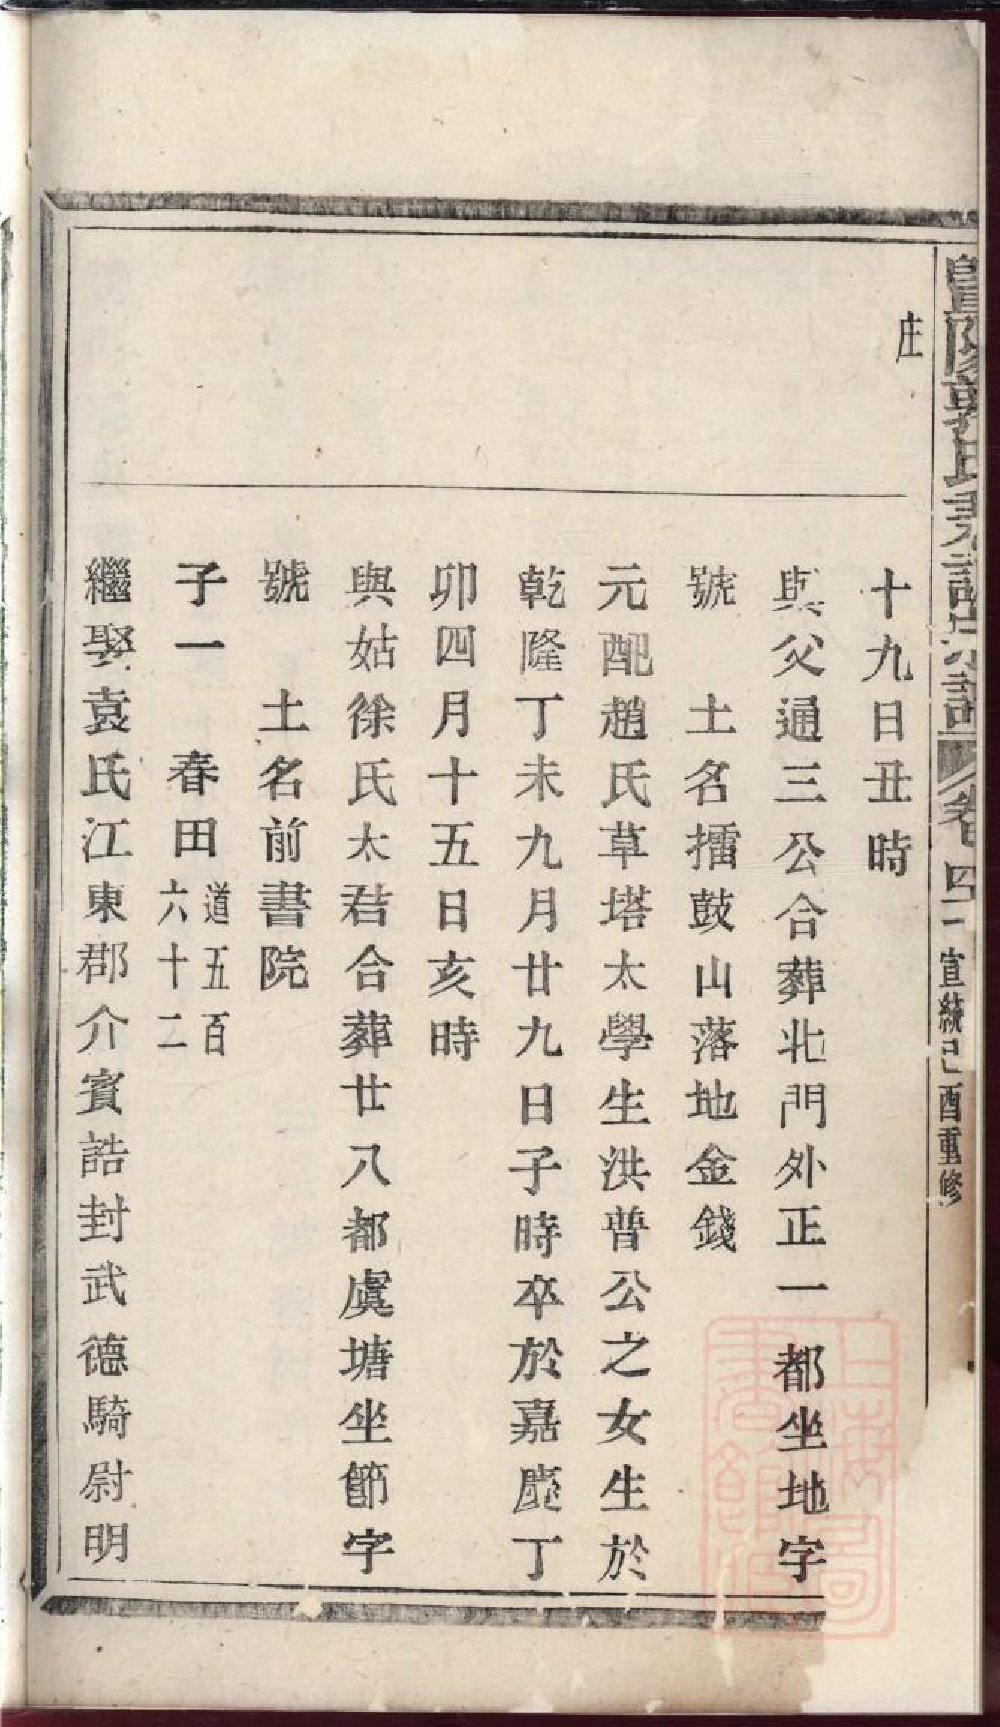 暨陽郭氏宗譜 卷四 一 宣統己酉重修
庄
十九日丑時
與父通三公合葬北門外正一都坐地字
號 土名擂鼓山落地金錢
元配趙氏草塔太學生洪普公之女生於
乾隆丁未九月廿九日子時卒於嘉慶丁
卯四月十五日亥時
與姑徐氏太君合葬廿八都虞塘坐節字
號 土名前書院
子一 春田 道五百六十二
繼娶袁氏江東郡介賓誥封武德騎尉明
上海圖書館藏